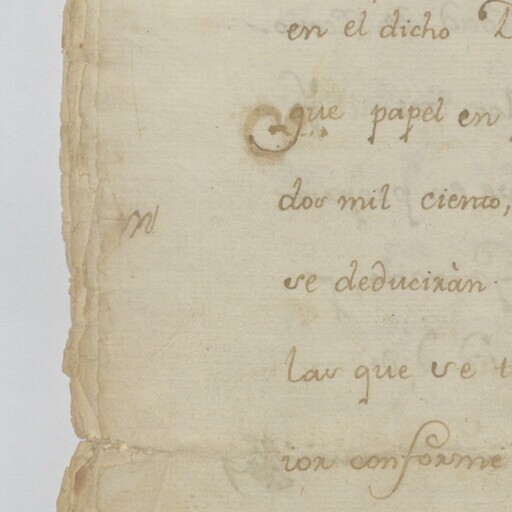 en el dicho D
que papel en
dos mil ciento,
se deduciràn
las que se t
ior conforme